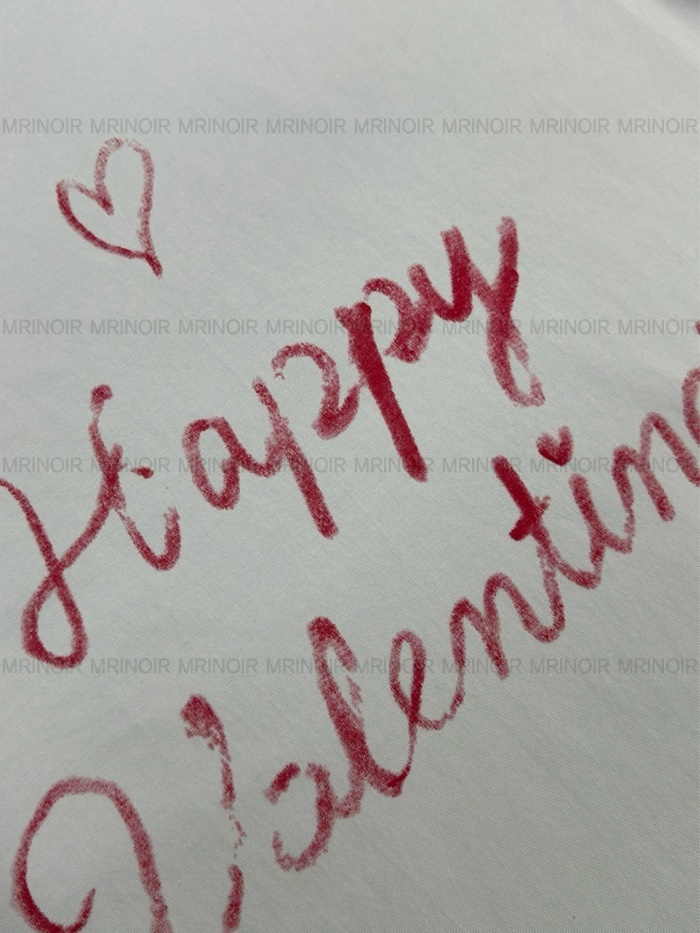 MRINOIR MRINOIR MRINOIR MRINOIR MRINOIR MRINOIR MRINOIR MRINOIR
MRINOIR MRINOIR MRINOIR MRINOIR MRINOIR MRINOIR MRINOIR MRINOIR
Happy
MRINOIR MRINOIR MRINOIR MRINOIR MRINOIR MRINOIR MRINOIR MRINOIR
Valentin
MRINOIR MRINOIR MRINOIR MRINOIR MRINOIR MRINOIR MRINOIR MRINOIR